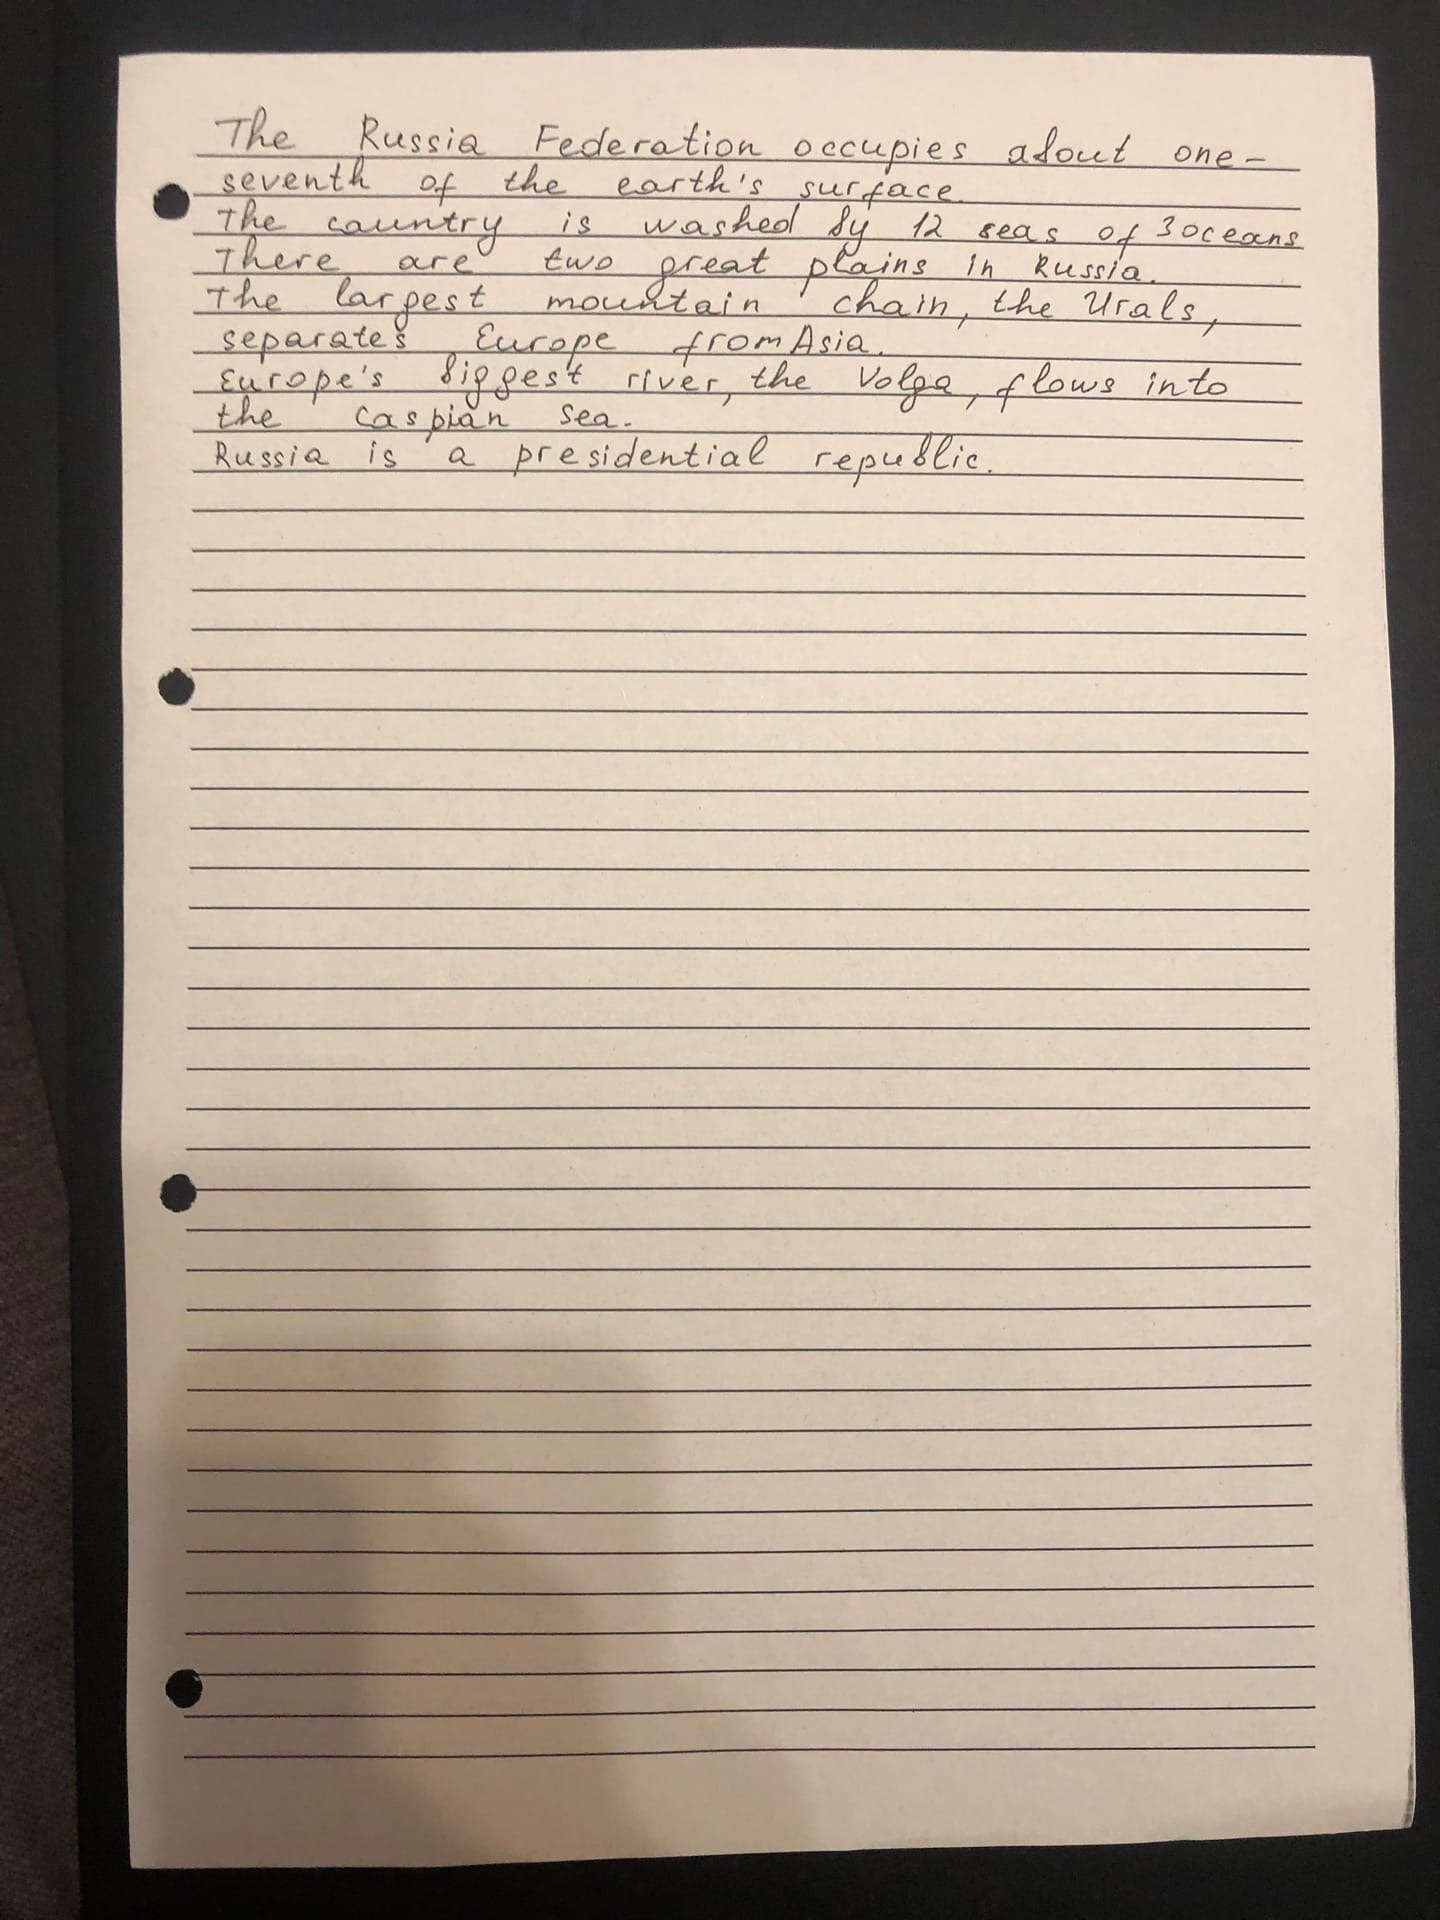 The Russia Federation occupies about one-
seventh of the earth's surface.
The country is washed by 12 seas of 3 oceans
There are two great plains in Russia.
The largest mountain chain, the Urals,
separates Europe from Asia.
Europe's biggest river, the Volga, flows into
the Caspian Sea.
Russia is a presidential republic.